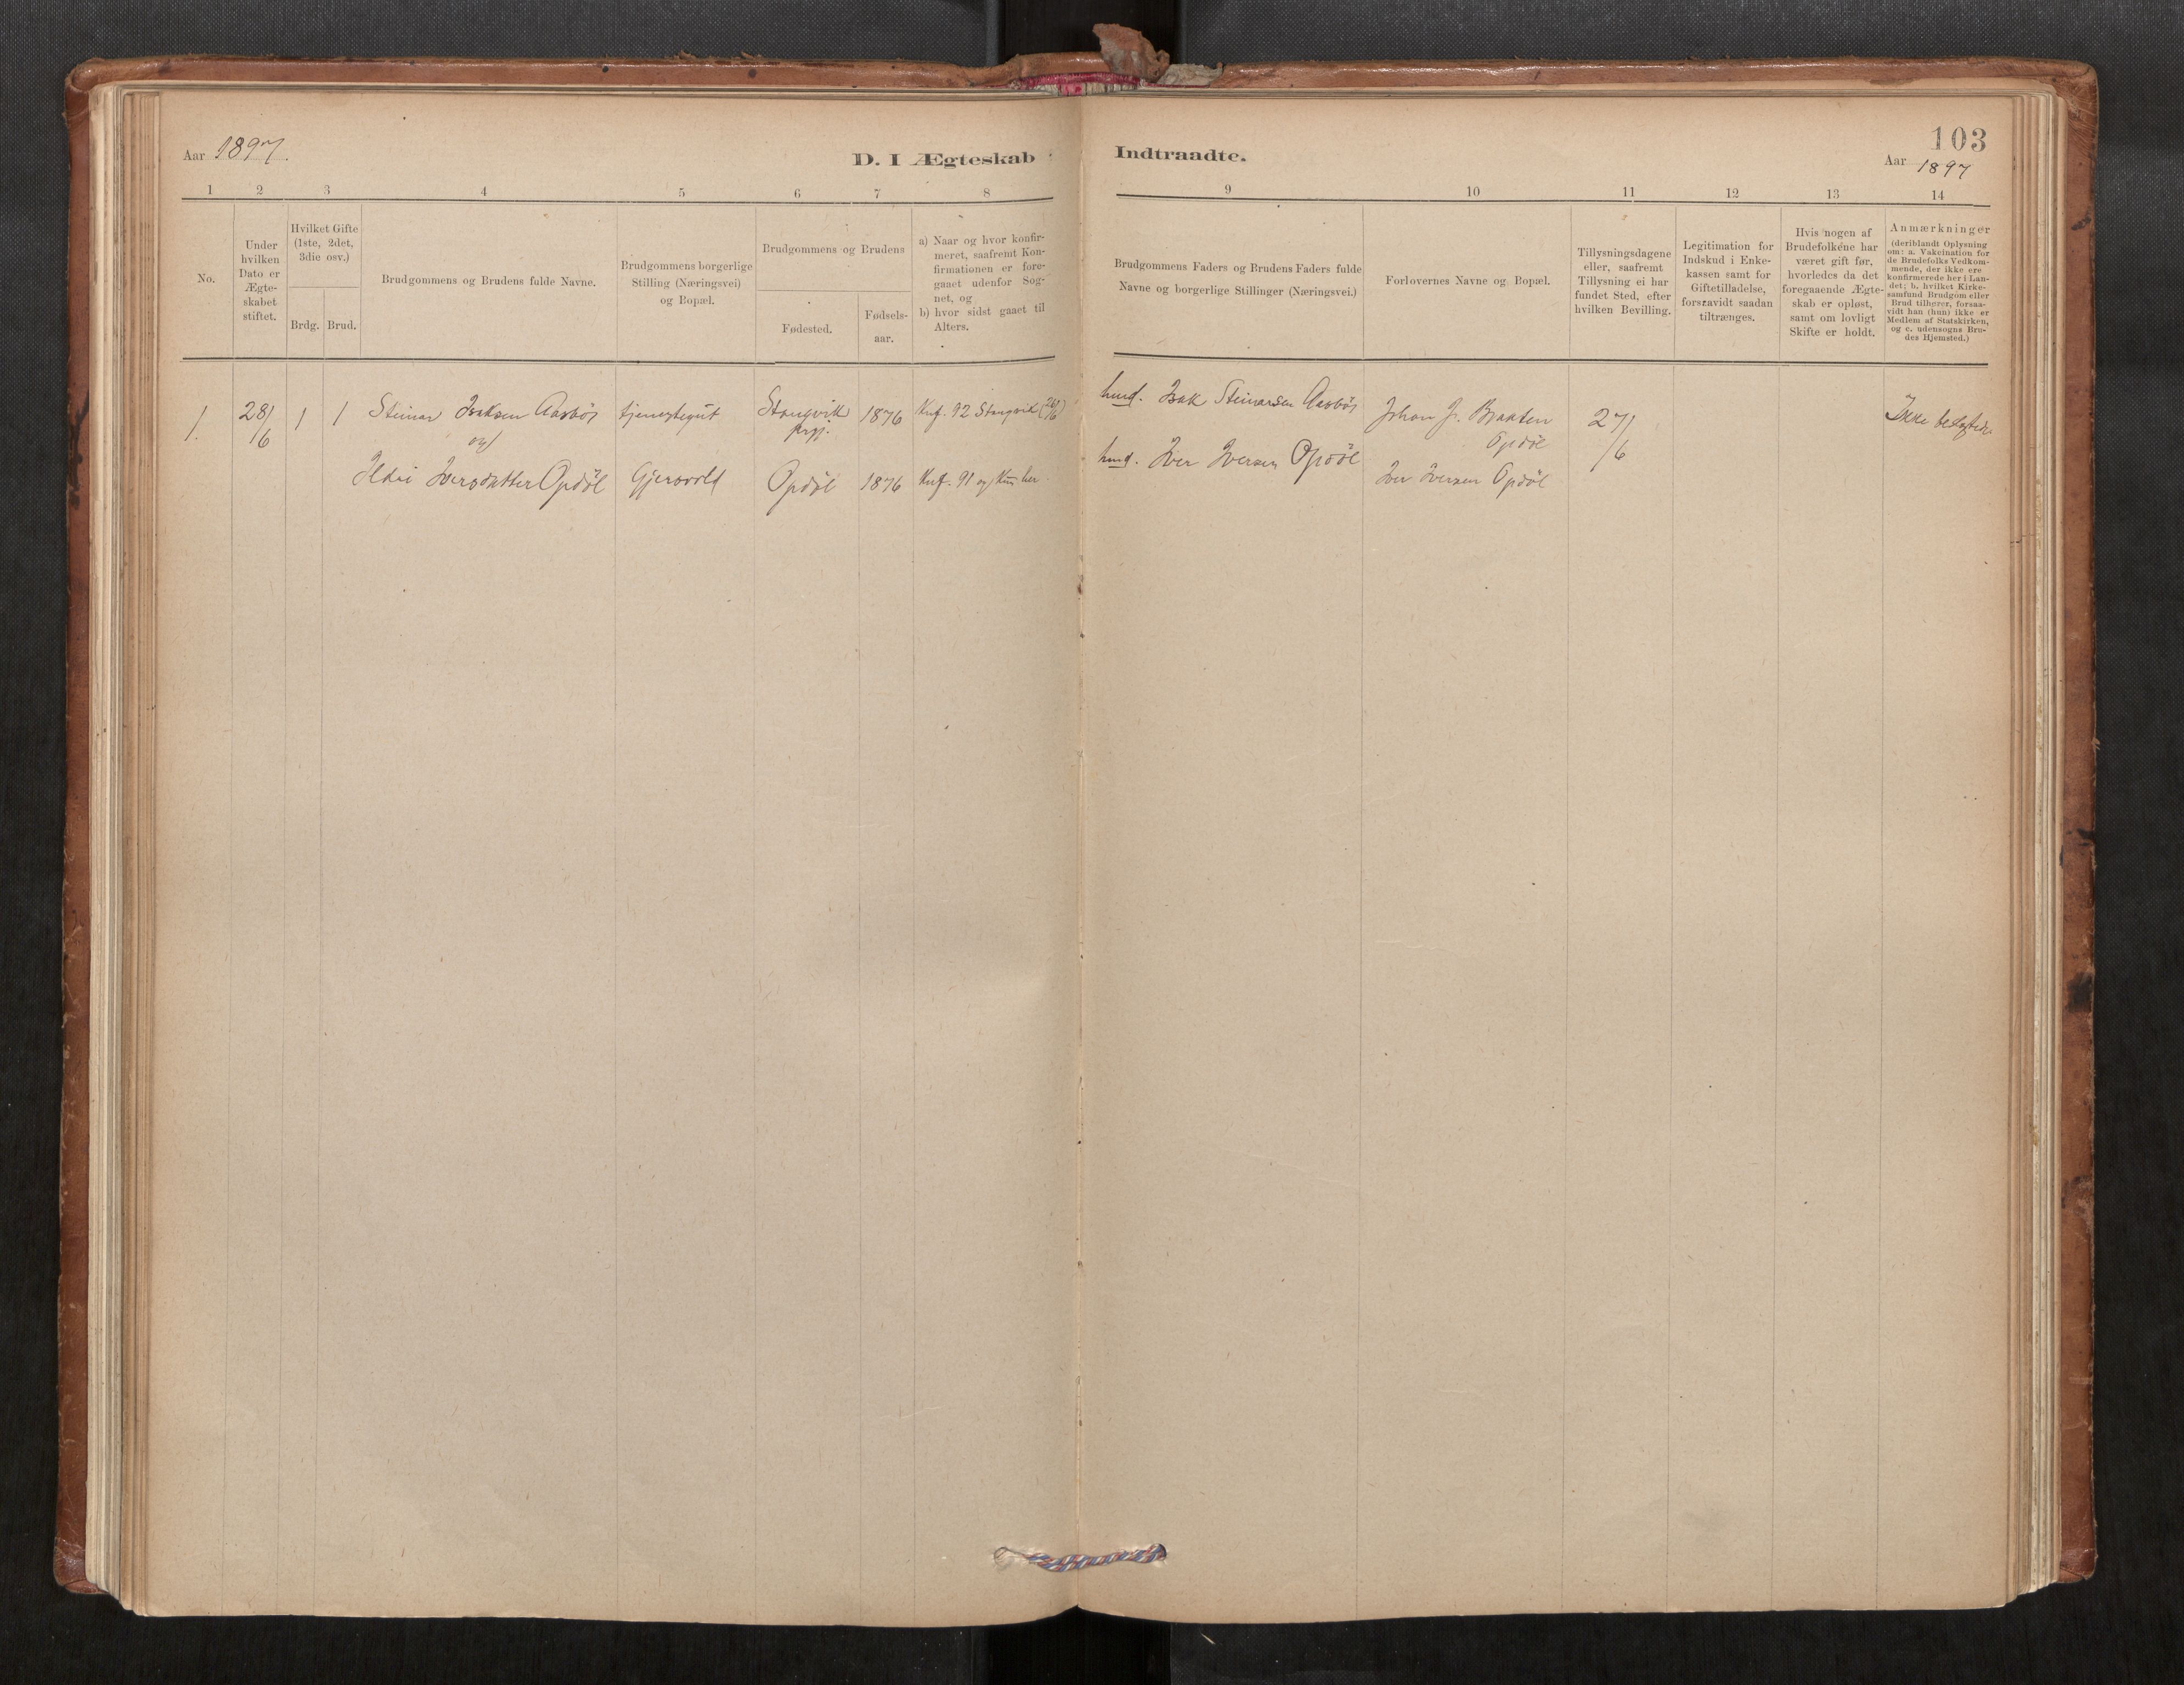 Aar 1897.
D. I Ægteskab
Indtraadte.
103
Aar 1897
1 2 3 4 5 6 7 8
9 10 11 12 13 14
No.
Under
hvilken
Dato er
Ægte-
skabet
stiftet.
Hvilket Gifte
(1ste, 2det,
3die osv.)
Brdg. Brud.
Brudgommens og Brudens fulde Navne.
Brudgommens borgerlige
Stilling (Næringsvei)
og Bopæl.
Brudgommens og Brudens
Fødested.
Fødsels-
aar.
a) Naar og hvor konfir-
meret, saafremt Kon-
firmationen er fore-
gaaet udenfor Sog-
net, og
b) hvor sidst gaaet til
Alters.
Brudgommens Faders og Brudens Faders fulde
Navne og borgerlige Stillinger (Næringsvei.)
Forlovernes Navne og Bopæl.
Tillysningsdagene
eller, saafremt
Tillysning ei har
fundet Sted, efter
hvilken Bevilling.
Legitimation for
Indskud i Enke-
kassen samt for
Giftetilladelse,
forsaavidt saadan
tiltrænges.
Hvis nogen af
Brudefolkene har
været gift før,
hvorledes da det
foregaaende Ægte-
skab er opløst,
samt om lovligt
Skifte er holdt.
Anmærkninger
(deriblandt Oplysning
om: a. Vakcination for
de Brudefolks Vedkom-
mende, der ikke ere
konfirmerede her i Lan-
det; b. hvilket Kirke-
samfund Brudgom eller
Brud tilhører, forsaa-
vidt han (hun) ikke er
Medlem af Statskirken,
og c. udensogns Bru-
des Hjemsted.)
1. 28/6 1 1 Steinar Isaksen Aasbös tjenestegut Stangvik 1876 Knf. 92 Stangvik
prgj.
og
Ildri Iversdatter Opdöl Gjersvold Opdöl 1876 Knf. 91 og her.
hmd. Isak Steinarsen Aasbös
hmd. Iver Iversen Opdöl
Johan J. Braaten
Opdöl
Iver Iversen Opdöl
27/6
Ikke